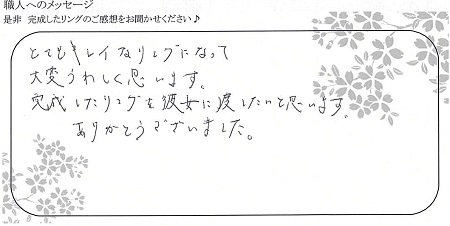 職人へのメッセージ
是非 完成したリングのご感想をお聞かせください♪
とてもキレイなリングになって
大変うれしく思います。
完成したリングを彼女に渡したいと思います。
ありがとうございました。